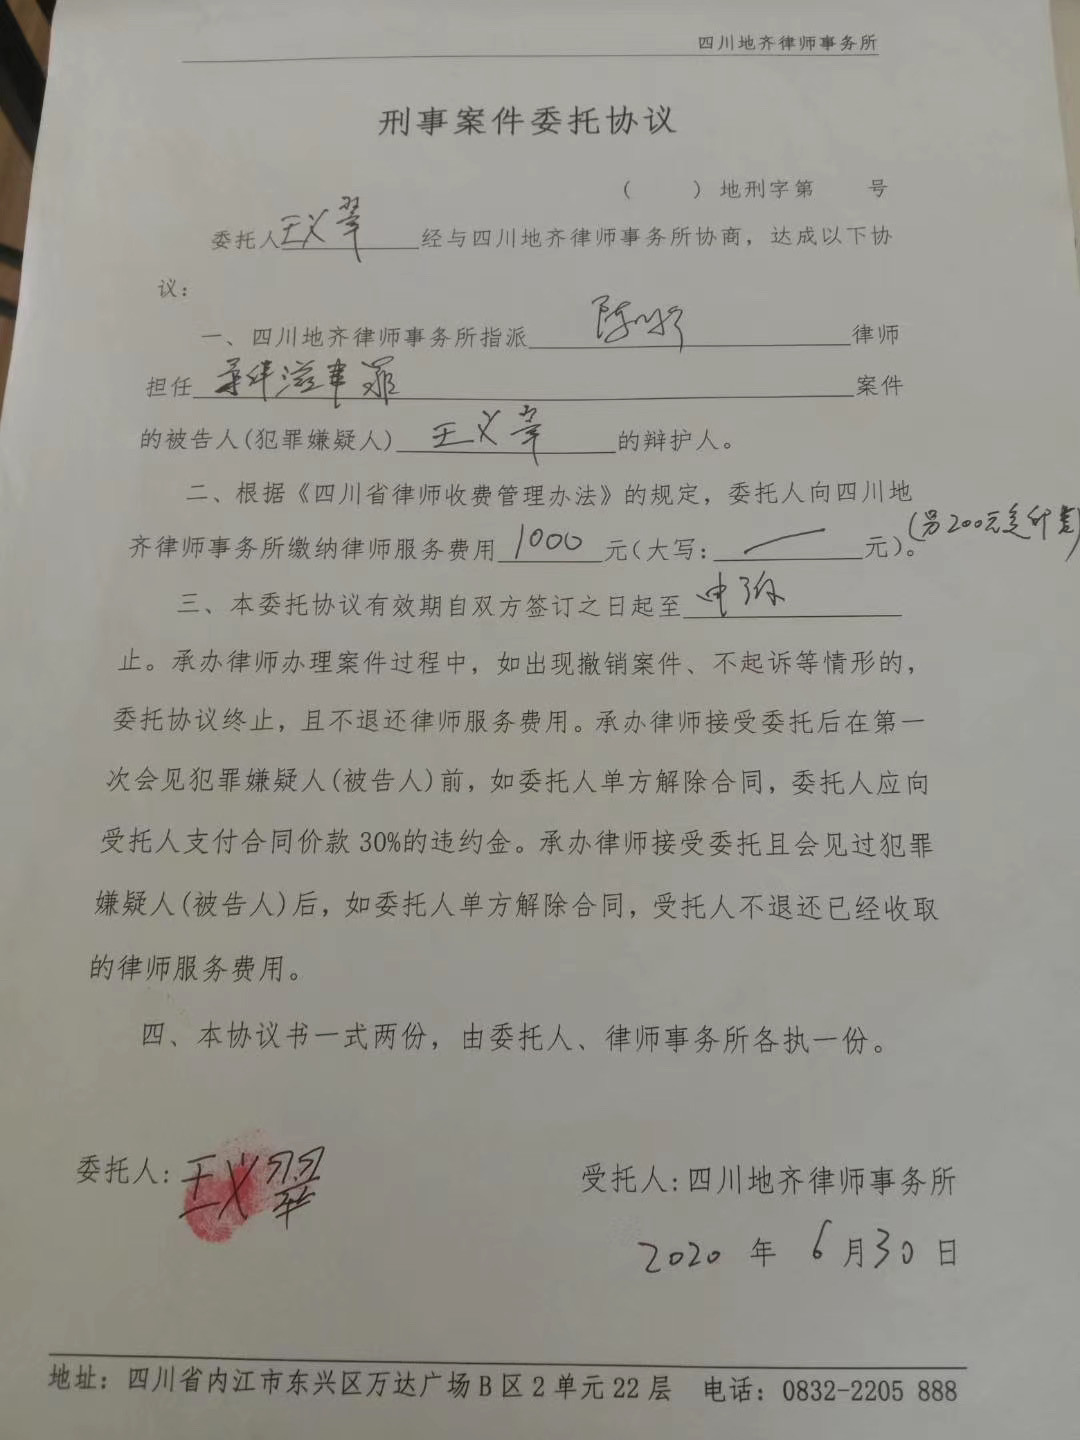 四川地齐律师事务所
刑事案件委托协议
( ) 地刑字第 号
委托人王义翠经与四川地齐律师事务所协商，达成以下协
议：
一、四川地齐律师事务所指派 律师
担任寻衅滋事罪案件
的被告人(犯罪嫌疑人)王义翠的辩护人。
二、根据《四川省律师收费管理办法》的规定，委托人向四川地
齐律师事务所缴纳律师服务费用1000元(大写：—元)。(另200元
三、本委托协议有效期自双方签订之日起至
止。承办律师办理案件过程中，如出现撤销案件、不起诉等情形的，
委托协议终止，且不退还律师服务费用。承办律师接受委托后在第一
次会见犯罪嫌疑人(被告人)前，如委托人单方解除合同，委托人应向
受托人支付合同价款30%的违约金。承办律师接受委托且会见过犯罪
嫌疑人(被告人)后，如委托人单方解除合同，受托人不退还已经收取
的律师服务费用。
四、本协议书一式两份，由委托人、律师事务所各执一份。
委托人:王义翠
受托人:四川地齐律师事务所
2020年6月30日
地址：四川省内江市东兴区万达广场B区2单元22层 电话：0832-2205 888